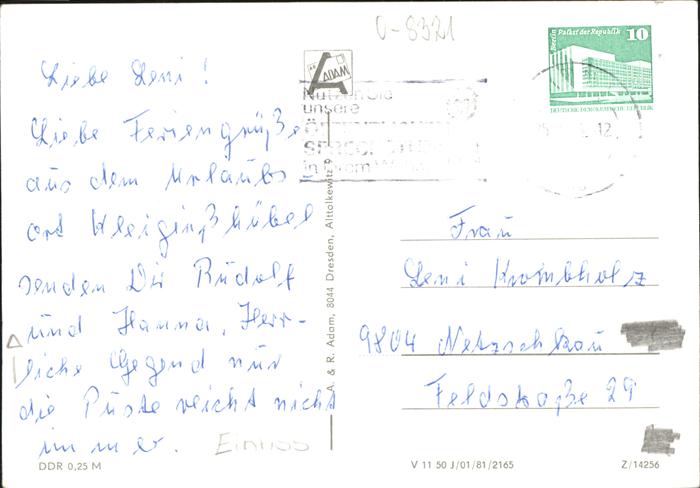 0-8321
Liebe Leni!
Liebe Feriengrüße
aus dem Urlaubs-
ort Kleingießhübel
senden Dir Rudolf
und Hanna. Herr-
liche Gegend nur
die Puste reicht nicht
immer.
DDR 0,25 M
ADAM
A. & R. Adam, 8044 Dresden, Alttolkewitz 9
Nutzen Sie
unsere
in Ihrem
Berlin Palast der Republik 10
DEUTSCHE DEMOKRATISCHE REPUBLIK
12
Frau
Leni Krombholz
9804 Netzschkau
Feldstraße 29
V 11 50 J/01/81/2165
Z/14256